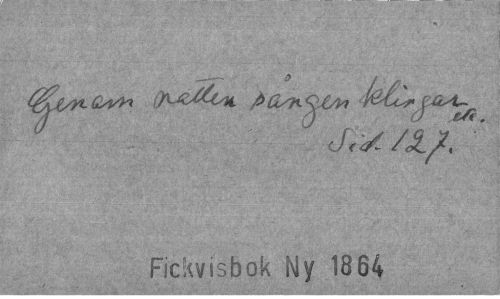 Genom natten sången klingar
etc.
Sid. 127.
Fickvisbok Ny 1864